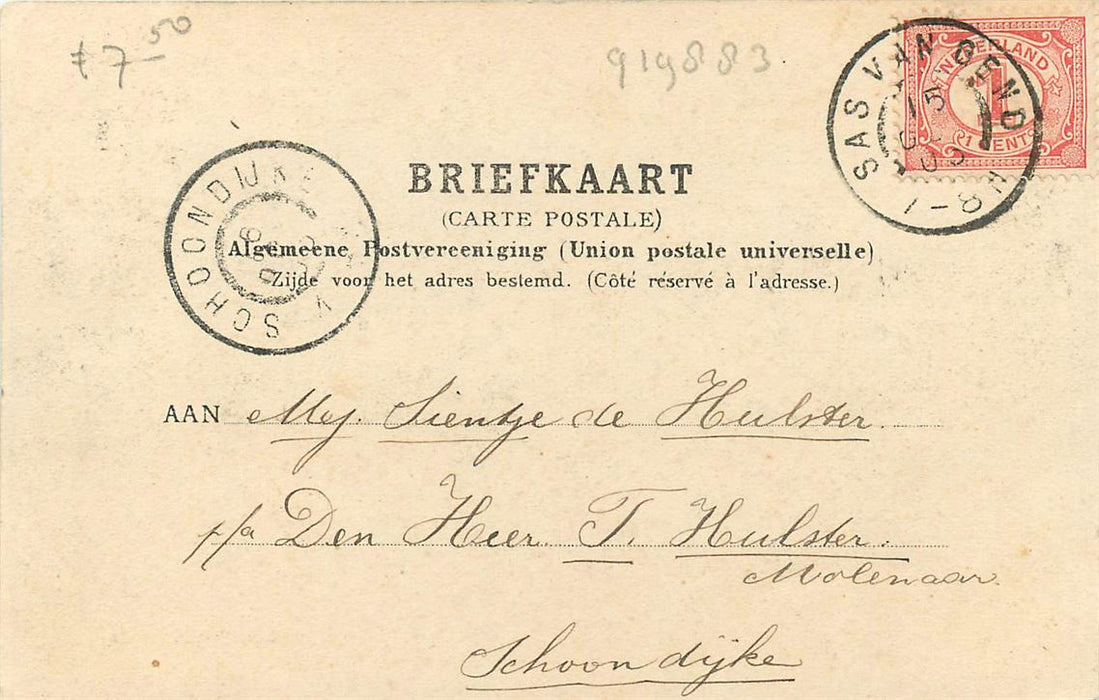 f 7-50
919883
NEDERLAND
1
1 CENT
SAS VAN GENT
7-8 N
BRIEFKAART
(CARTE POSTALE)
Algemeene Postvereeniging (Union postale universelle)
Zijde voor het adres bestemd. (Côté réservé à l'adresse.)
SCHOONDIJKE
AAN Mej. Sientje de Hulster.
p/a Den Heer. T. Hulster.
Molenaar.
Schoondijke